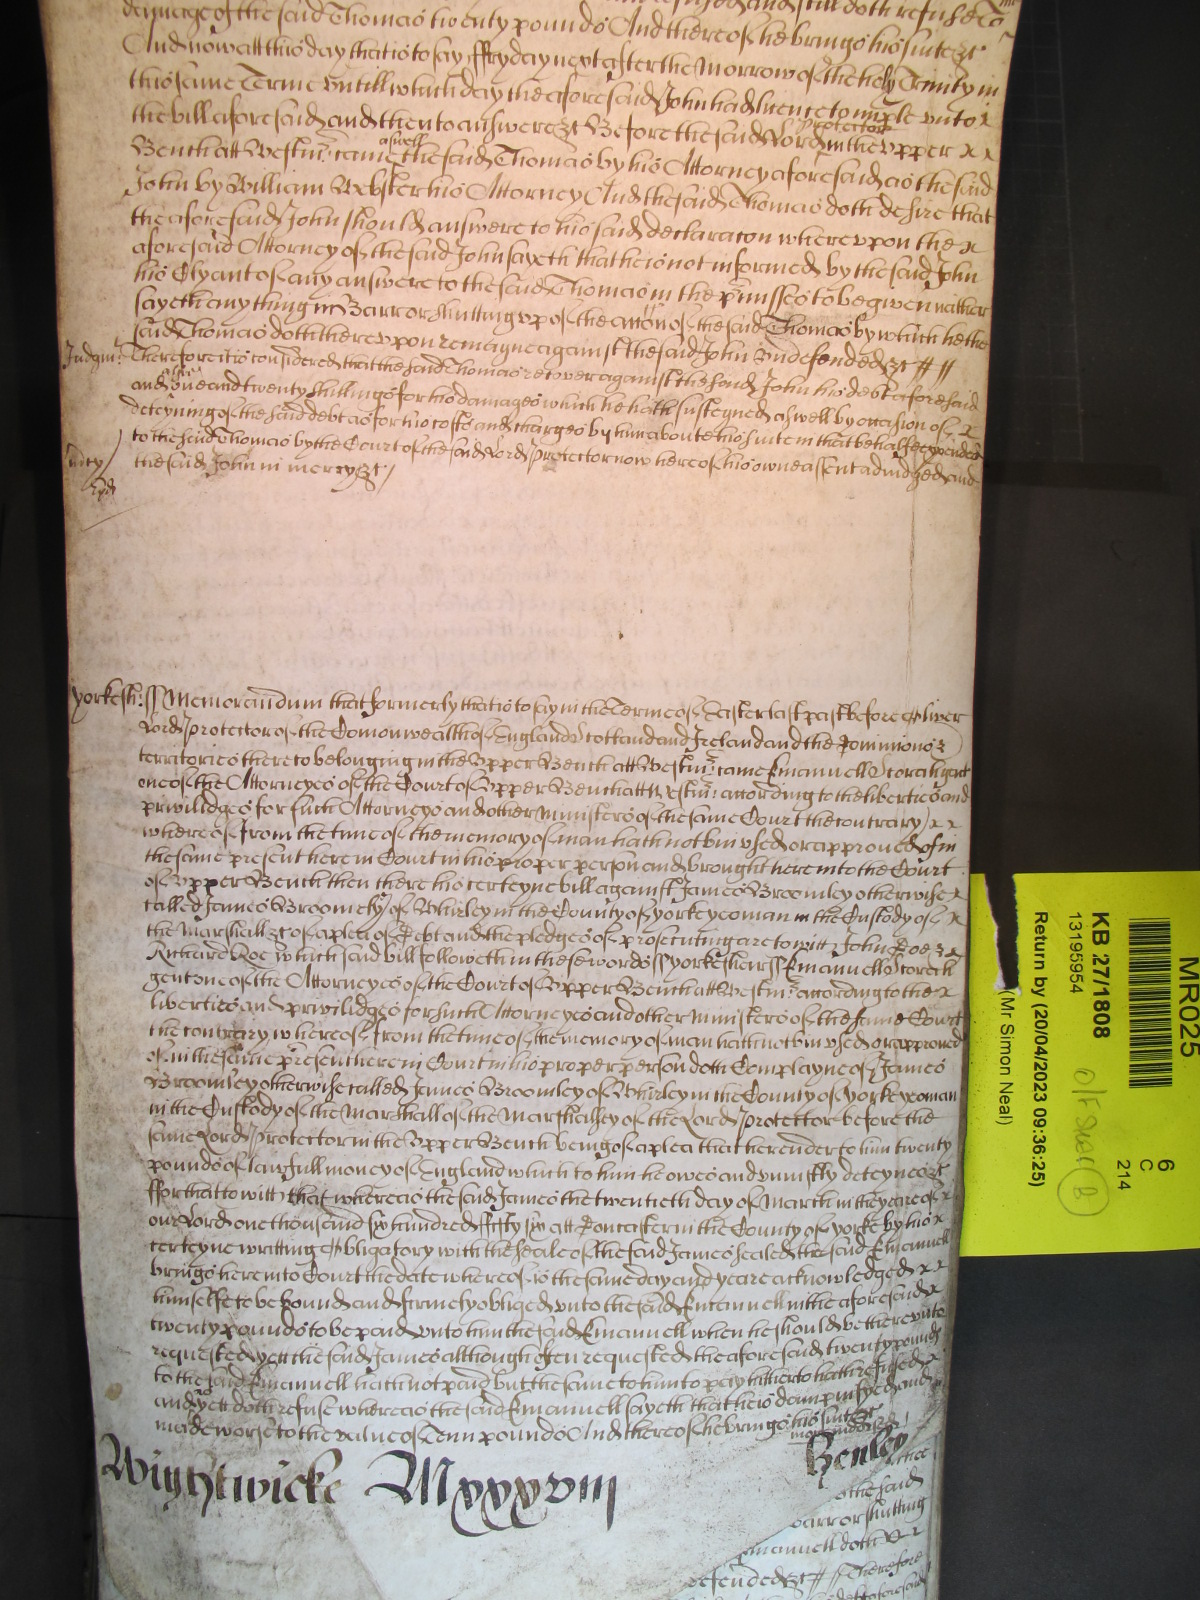 damage of the said Thomas twenty pounds And thereof he brings his suite &c
And now att this day that is to say ffryday next after the Morrow of the holy Trinity in
this same Terme Untill which day the aforesaid John had licence to imple unto x
the bill aforesaid and then to answere &c Before the said Lord protector in the Upper x x
Bench att Westm: came aswell the said Thomas by his Attorney aforesaid as the said
John by William Webster his Attorney And the said Thomas doth desire that
the aforesaid John should answere to his said declaracon whereupon the x
aforesaid Attorney of the said John sayeth that he is not informed by the said John
his Clyant of any answere to the said Thomas in the p'misses to be given nather
sayeth any thing in Barr or shutting up of the accon of the said Thomas by which he the
said Thomas doth thereupon remayne against the said John undefended &c # //
Judgm: Therefore itis considered that the said Thomas recover against the said John his debt aforesaid
and alsoe one and twenty shillings for his damages which he hath susteyned aswell by occasion of x
deteyning of the said debt as for his costs and charges by him about his suite in that behalfe expended
to the said Thomas by the Court of the said Lord protector now here of his owne assent adiudged and
the said John in mercy &c /
Yorkesh: ss Memorandum that formerly that is to say in the Terme of Easter last past before Oliver
Lord Protector of the Comonwealth of England Scotland and Ireland and the Dominions &
territories thereto belonging in the Upper Bench att Westm: came Emanuell Storch gent
one of the Attorneyes of the Court of Upper Bench att Westm: according to the liberties and
priviledges for such Attorneys and other Ministers of the same Court the contrary x x
whereof from the time of the memory of man hath not bin used or approved of in
the same present here in Court in his proper person and brought here into the Court
of Upper Bench then there his certeyne bill against James Broomley otherwise x
called James Broomley of Whirley in the County of yorke yeoman in the Custody of x
the Marshall &c of a plea of Debt and the pledges of prosecuting are to witt John Doe & x
Richard Roe which said bill followeth in these words ss yorkeshear ss Emanuell Storch
gent one of the Attorneyes of the Court of Upper Bench att Westm: according to the x
liberties and priviledges for such Attorneyes and other Ministers of the same Court
the contrary whereof from the time of the memory of man hath not bin used or approved
of in the same present here in Court in his proper person doth Complayne of James
Broomley otherwise called James Broomley of Whirley in the County of yorke yeoman
in the Custody of the Marshall of the Marshallsey of the Lord Protector before the
same Lord Protector in the Upper Bench being of a plea that he render to him twenty
pounds of lawfull money of England which to him he owes and uniustly deteynes &c
ffor that to witt that whereas the said James the twentieth day of March in the yeare of x
our Lord one thousand six hundred fifty six att Doncaster in the County of yorke by his x
certeyne writting Obligatory with the seale of the said James sealed the said Emanuell
brings here into Court the date whereof is the same day and yeare acknowledged x x
himselfe to be bound and firmely obliged unto the said Emanuell in the aforesaid x
twenty pounds to be paid unto him the said Emanuell when he should be thereunto
requested yett the said James although often requested the aforesaid twenty pounds
to the said Emanuell hath not paid but the same to him to pay hitherto hath refused x
and yett doth refuse whereas the said Emanuell sayeth that he is dampnifyed and
made worse to the value of Tenn pounds And thereof he brings his suite &c
Wightwicke Mxxxviii Henley
the said
barr or shutting
Emanuell doth x x
defended &c # // Therefore
debt aforesaid
MR025
6
C
214
KB 27/1808
13195954
Return by (20/04/2023 09:36:25)
(Mr Simon Neal)